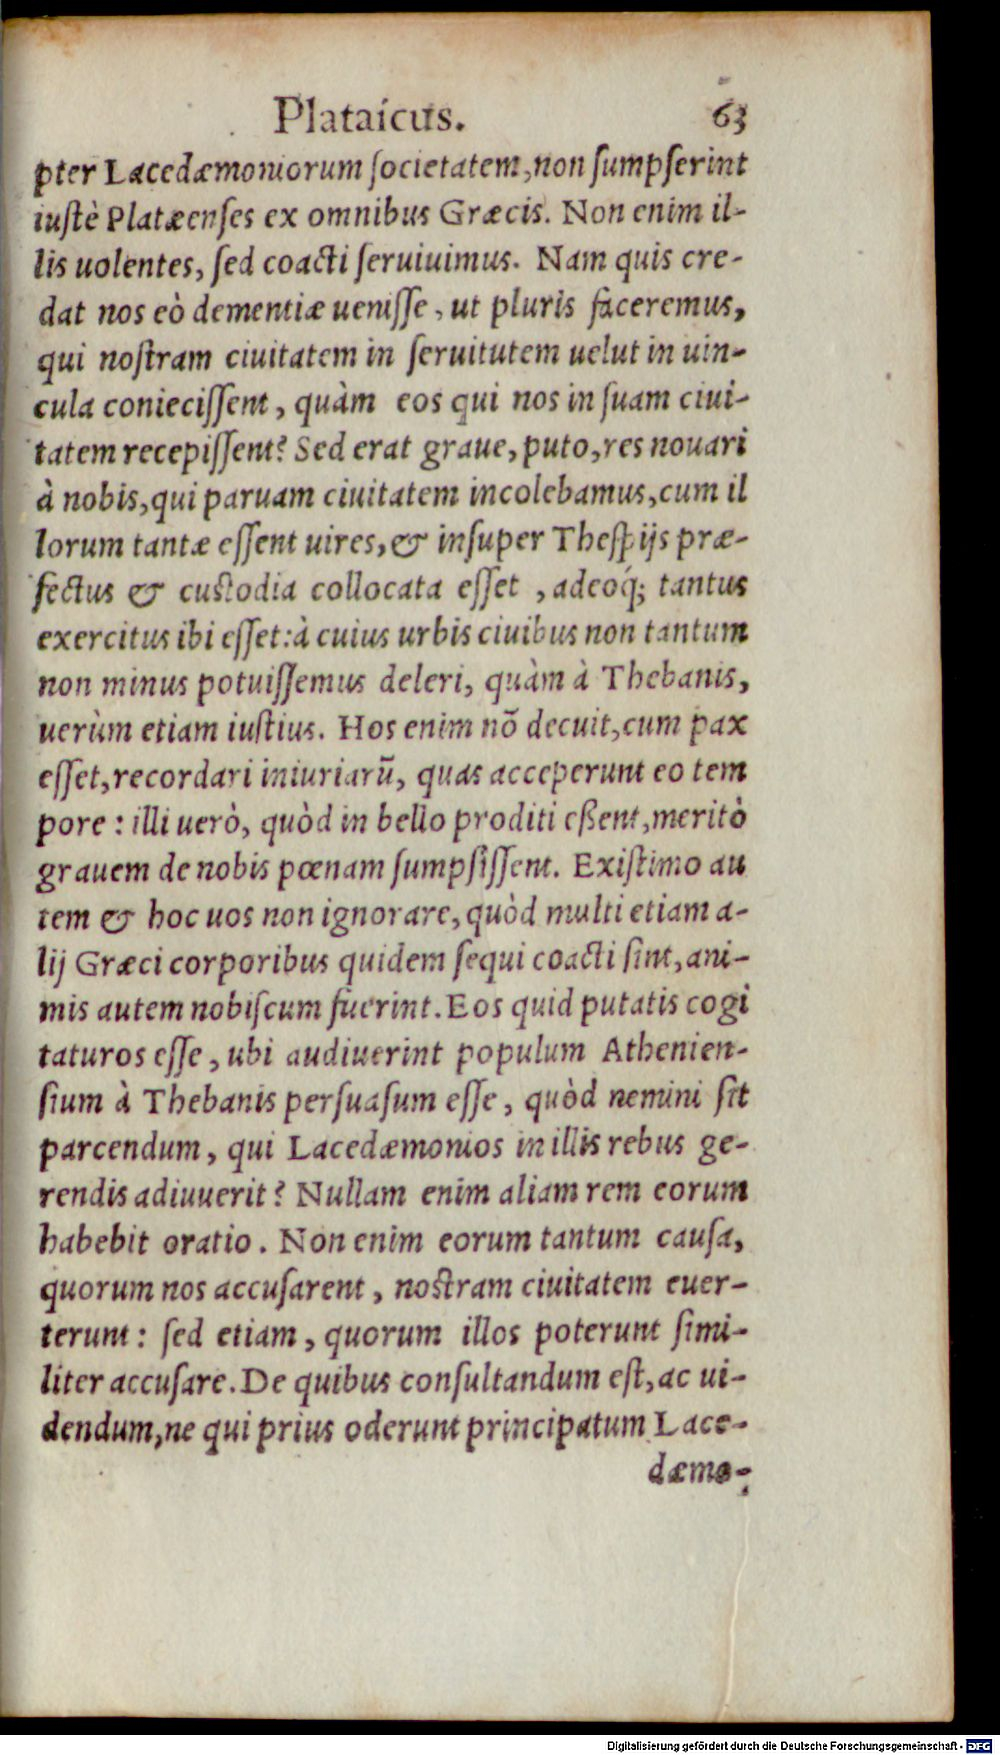 Plataicus. 63
pter Lacedæmoniorum ſocietatem, non ſumpſerint
iuſtè Platæenſes ex omnibus Græcis. Non enim il-
lis uolentes, ſed coacti ſeruiuimus. Nam quis cre-
dat nos eò dementiæ ueniſſe, ut pluris faceremus,
qui noſtram ciuitatem in ſeruitutem uelut in uin-
cula conieciſſent, quàm eos qui nos in ſuam ciui-
tatem recepiſſent? Sed erat graue, puto, res nouari
à nobis, qui paruam ciuitatem incolebamus, cum il
lorum tantæ eſſent uires, & inſuper Theſpijs præ-
fectus & cuſtodia collocata eſſet, adeoq́; tantus
exercitus ibi eſſet: à cuius urbis ciuibus non tantum
non minus potuiſſemus deleri, quàm à Thebanis,
uerùm etiam iuſtius. Hos enim nõ decuit, cum pax
eſſet, recordari iniuriarũ, quas acceperunt eo tem
pore: illi uerò, quòd in bello proditi eßent, meritò
grauem de nobis pœnam ſumpſiſſent. Exiſtimo au
tem & hoc uos non ignorare, quòd multi etiam a-
lij Græci corporibus quidem ſequi coacti ſint, ani-
mis autem nobiſcum fuerint. Eos quid putatis cogi
taturos eſſe, ubi audiuerint populum Athenien-
ſium à Thebanis perſuaſum eſſe, quòd nemini ſit
parcendum, qui Lacedæmonios in illis rebus ge-
rendis adiuuerit? Nullam enim aliam rem eorum
habebit oratio. Non enim eorum tantum cauſa,
quorum nos accuſarent, noſtram ciuitatem euer-
terunt: ſed etiam, quorum illos poterunt ſimi-
liter accuſare. De quibus conſultandum eſt, ac ui-
dendum, ne qui prius oderunt principatum Lace-
dæmo-
Digitalisierung gefördert durch die Deutsche Forschungsgemeinschaft - DFG